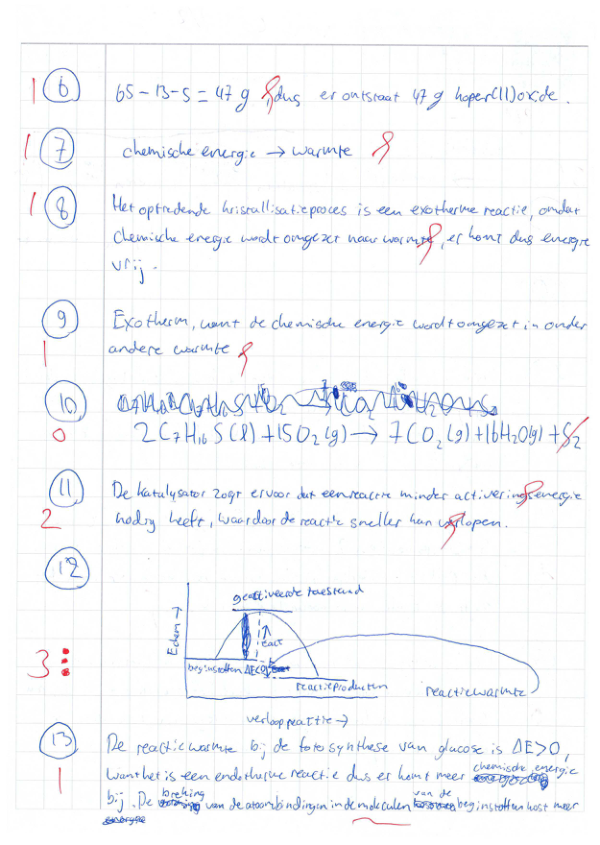 1 6 65 - 13 - 5 = 47 g, dus er ontstaat 47 g koper(II)oxide.
1 7 chemische energie → warmte
1 8 Het optredende kristallisatieproces is een exotherme reactie, omdat
chemische energie wordt omgezet naar warmte, er komt dus energie
vrij.
9 Exotherm, want de chemische energie wordt omgezet in onder
1 andere warmte
10
0 2C₇H₁₆S(l) + 15O₂(g) → 7CO₂(g) + 16H₂O(g) + S₂
11 De katalysator zogt ervoor dat een reactie minder activeringsenergie
2 nodig heeft, waardoor de reactie sneller kan verlopen.
12
geactiveerde toestand
Echem →
Eact
beginstoffen ΔE<0
3
reactieproducten
reactiewarmte
verloop reactie →
13 De reactiewarmte bij de fotosynthese van glucose is ΔE>0,
1 want het is een endotherme reactie dus er komt meer chemische energie
bij. De breking van de atoombindingen in de moleculen van de beginstoffen kost meer